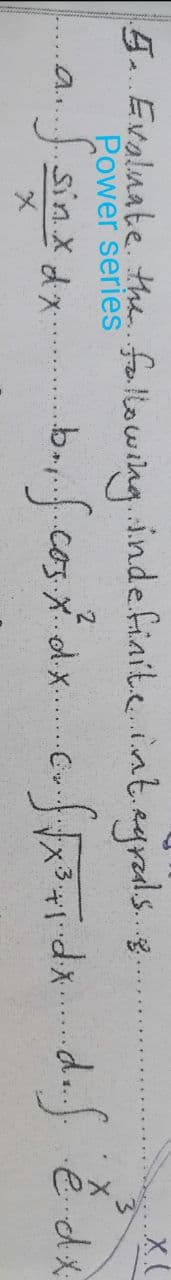 x(
5. Evaluate the following indefinite integrals :
Power series
a. ∫ sin x / x dx b. ∫ cos x² dx c. ∫ √x³+1 dx d. ∫ e^x³ dx